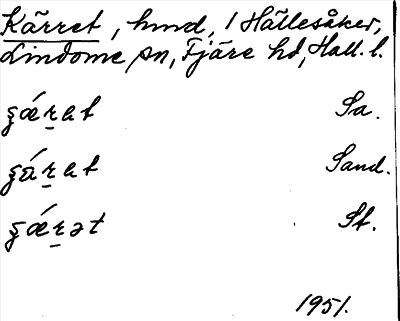 Kärret, hmd, 1 Hällesåker,
Lindome sn, Fjäre hd, Hall. l.
ʂǽṟet Sa.
ʂáṟet Sand.
ʂǽṟət St.
1951.